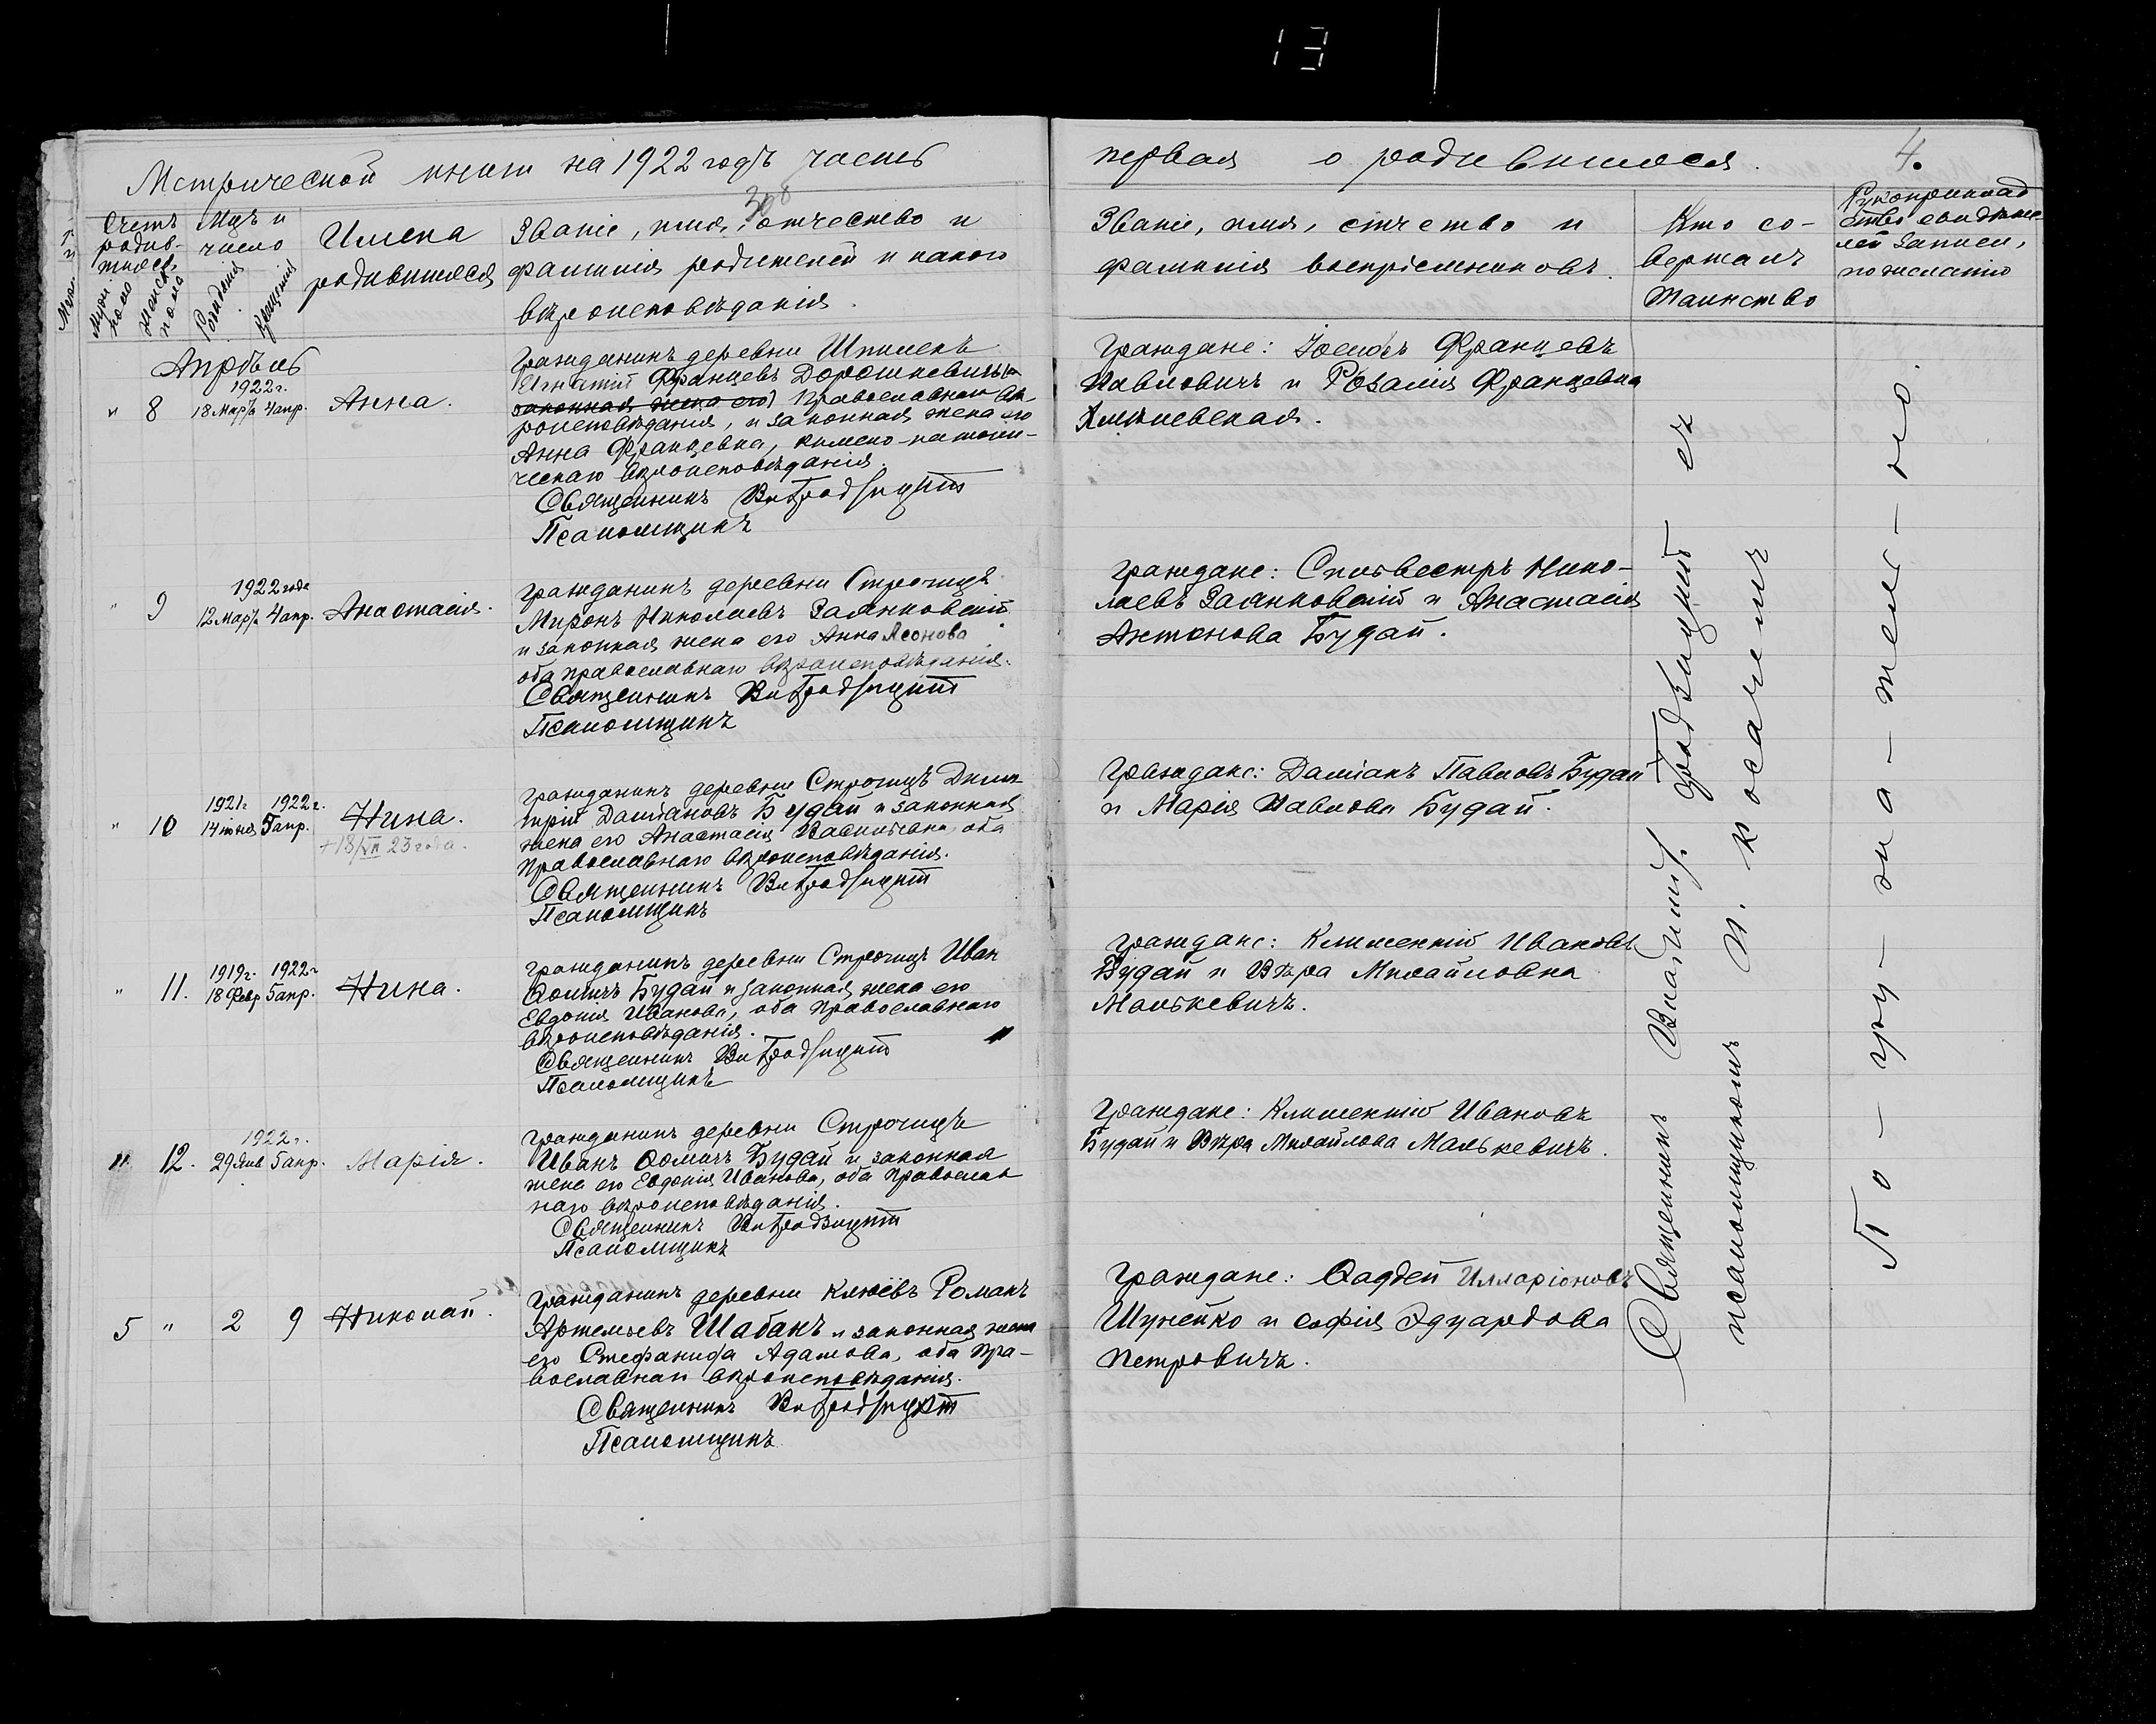 13
Метрической книги на 1922 годъ часть
первая о родившихся.
4.
Счетъ родив-
шихся
Муж. пола
Женск. пола
Мцъ и
число
Рожденія
Крещенія
Имена
родившихся
Званіе, имя, отчество и
фамилія родителей и какого
вѣроисповѣданія.
Званіе, имя, отчество и
фамилія воспріемниковъ.
Кто со-
вершалъ
таинство
Рукоприклад
ство свидѣте
лей записи,
по желанію
Апрѣль
1922 г.
" 8 18 Мар/а 4 апр. Анна.
Гражданинъ деревни
Игнатій Францевъ Дорошкевичъ и
законная жена его) Православнаго вѣ-
роисповѣданія, и законная жена его
Анна Францевна, римско-католи-
ческаго вѣроисповѣданія.
Священникъ Вл Градзицкій
Псаломщикъ
Граждане: Іосифъ Францевъ
Павловичъ и Розалія Францевна
" 9 1922 года
12 Мар/а 4 апр. Анастасія.
Гражданинъ деревни Строчицъ
Миронъ Николаевъ Заянковскій
и законная жена его Анна Леонова
оба православнаго вѣроисповѣданія.
Священникъ Вл Градзицкій
Псаломщикъ
Граждане: Сильвестръ Нико-
лаевъ Заянковскій и Анастасія
Антонова Будай.
" 10 1921 г. 1922 г.
14 іюня 5 апр. Нина.
+ 18/VII 23 года.
Гражданинъ деревни Строчицъ Дими
трій Даміановъ Будай и законная
жена его Анастасія Васильевна, оба
православнаго вѣроисповѣданія.
Священникъ Вл Градзицкій
Псаломщикъ
Граждане: Даміанъ Павловъ Будай
и Марія Павлова Будай.
" 11. 1919 г. 1922 г.
18 Февр 5 апр. Нина.
Гражданинъ деревни Строчицъ Иван
Ѳомичъ Будай и законная жена его
Евдокія Иванова, оба Православнаго
вѣроисповѣданія.
Священникъ Вл Градзицкій
Псаломщикъ
Граждане: Климентій Ивановъ
Будай и Вѣра Михайловна
Малькевичъ.
" 12. 1922 г.
29 Янв 5 апр. Марія.
Гражданинъ деревни Строчицъ
Иванъ Ѳомичъ Будай и законная
жена его Евдокія Иванова, оба Православ
наго вѣроисповѣданія.
Священникъ Вл Градзицкій
Псаломщикъ
Граждане: Климентій Ивановъ
Будай и Вѣра Михайлова Малькевичъ.
5 " 2 9 Николай.
Гражданинъ деревни Клюевъ Романъ
Артемьевъ Шабанъ и законная жена
его Стефанида Адамова, оба Пра-
вославнаго вѣроисповѣданія.
Священникъ Вл Градзицкій
Псаломщикъ
Граждане: Ѳаддей Илларіоновъ
Шунейко и Софія Эдуардова
Петровичъ.
Священникъ Владимір. Градзицкій съ
псаломщикомъ И.
По - гра -